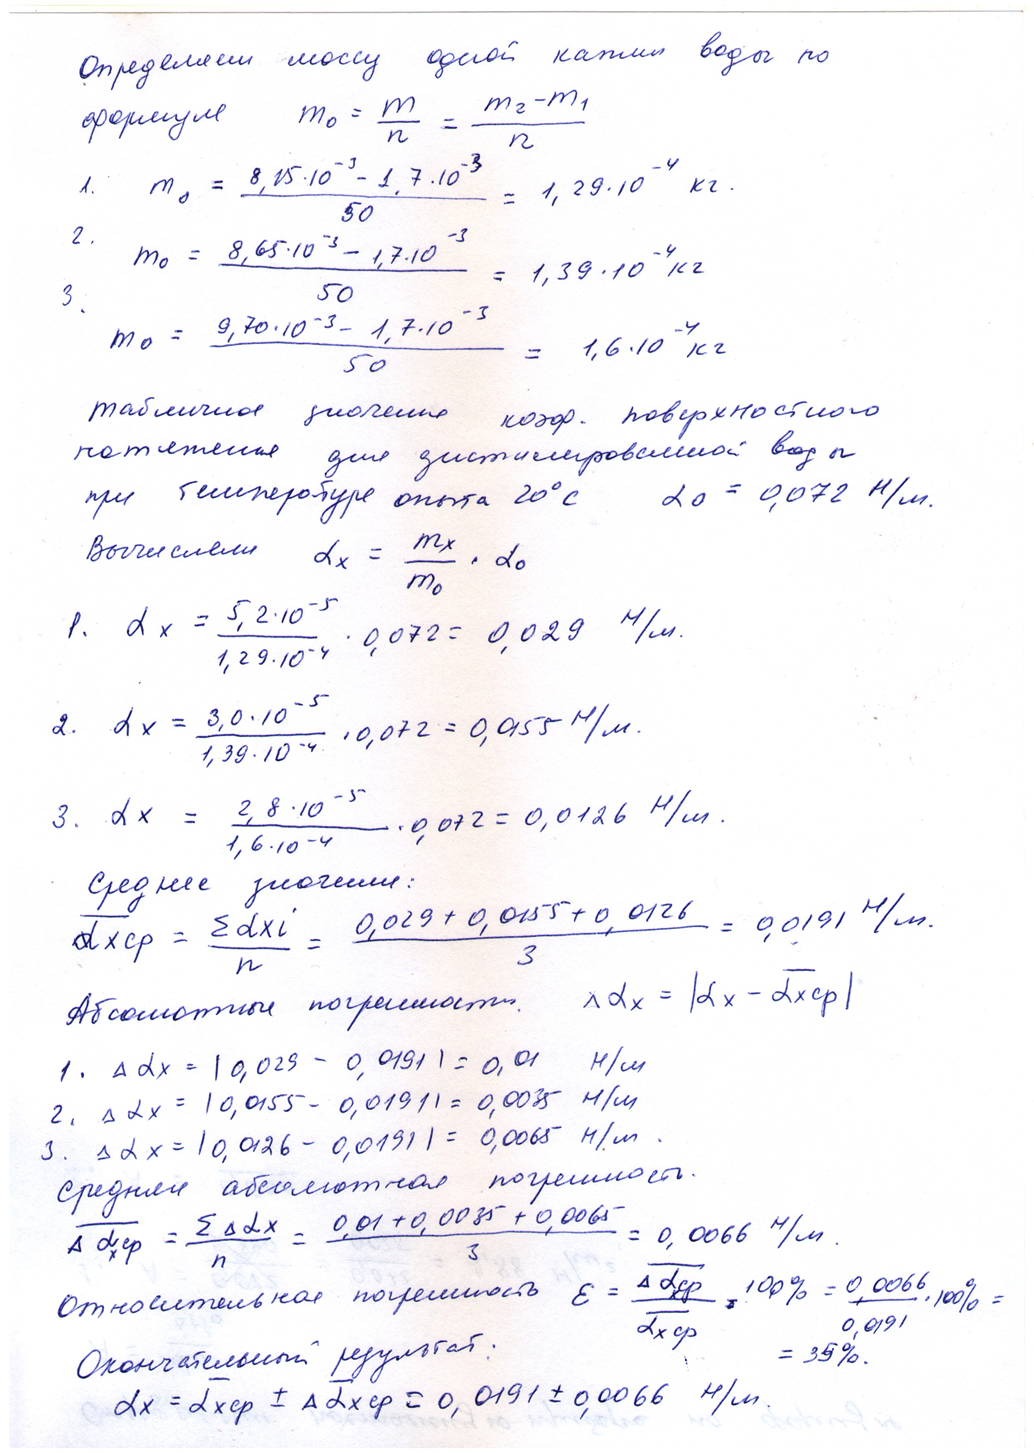 Определяем массу одной капли воды по
формуле m₀ = m/n = (m₂ - m₁)/n
1. m₀ = (8,15·10⁻³ - 1,7·10⁻³)/50 = 1,29·10⁻⁴ кг.
2. m₀ = (8,65·10⁻³ - 1,7·10⁻³)/50 = 1,39·10⁻⁴ кг
3. m₀ = (9,70·10⁻³ - 1,7·10⁻³)/50 = 1,6·10⁻⁴ кг
Табличное значение коэф. поверхностного
натяжения для дистилированной воды
при температуре опыта 20°C α₀ = 0,072 Н/м.
Вычислели αx = mx/m₀ · α₀
1. αx = 5,2·10⁻⁵/1,29·10⁻⁴ · 0,072 = 0,029 Н/м.
2. αx = 3,0·10⁻⁵/1,39·10⁻⁴ · 0,072 = 0,0155 Н/м.
3. αx = 2,8·10⁻⁵/1,6·10⁻⁴ · 0,072 = 0,0126 Н/м.
Среднее значение:
α̅xср = Σαxi/n = (0,029 + 0,0155 + 0,0126)/3 = 0,0191 Н/м.
Абсолютные погрешности. Δαx = |αx - α̅xср|
1. Δαx = |0,029 - 0,0191| = 0,01 Н/м
2. Δαx = |0,0155 - 0,0191| = 0,0035 Н/м
3. Δαx = |0,0126 - 0,0191| = 0,0065 Н/м.
Средняя абсолютная погрешность.
Δα̅xср = ΣΔαx/n = (0,01 + 0,0035 + 0,0065)/3 = 0,0066 Н/м.
Относительная погрешность ε = Δα̅xср/α̅xср · 100% = 0,0066/0,0191 · 100% =
= 35%.
Окончательный результат:
αx = α̅xср ± Δα̅xср = 0,0191 ± 0,0066 Н/м.